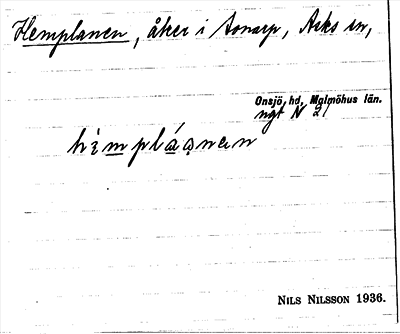 Hemplanen, åker i Aonarp, Asks sn,
Onsjö hd, Malmöhus län.
ngt N 21
NILS NILSSON 1936.